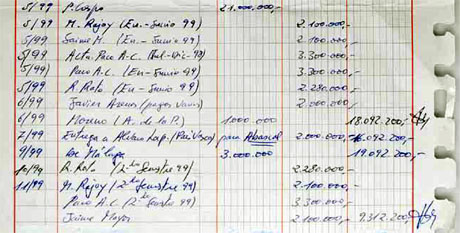 5/99 P. Crespo 21.000.000,-
5/99 M. Rajoy (En.-Junio 99) 2.100.000,-
5/99 Jaime M. (En.-Junio 99) 2.100.000,-
5/99 Paco A.C. 3.300.000,-
5/99) Paco A.C. (En-Junio 99) 3.300.000,-
5/99 R. Rato (En.-Junio 99) 2.280.000,-
6/99 Javier Arenas (pagos varios) 2.000.000,-
6/99 (A. de la P.) 1.000.000 18.092.200,-
7/99 Entrega a Alvaro Lap. (País Vasco) para Abascal 2.000.000,- 16.092.200,-
9/99 Málaga 3.000.000 19.092.200,-
10/99 R. Rato (2º Semestre 99) 2.280.000,-
11/99 M. Rajoy (2º Semestre 99) 2.100.000,-
Paco A.C (2º Semestre 99) 3.300.000,-
Jaime Mayor 2.100.000,- 9.312.200,-